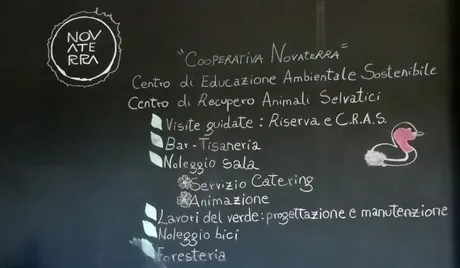 NOV
ATE
RRA
"COOPERATIVA NOVATERRA"
CENTRO DI EDUCAZIONE AMBIENTALE SOSTENIBILE
CENTRO DI RECUPERO ANIMALI SELVATICI
Visite guidate: Riserva e C.R.A.S.
Bar-Tisaneria
Noleggio sala
Servizio Catering
Animazione
Lavori del verde: progettazione e manutenzione
Noleggio bici
Foresteria